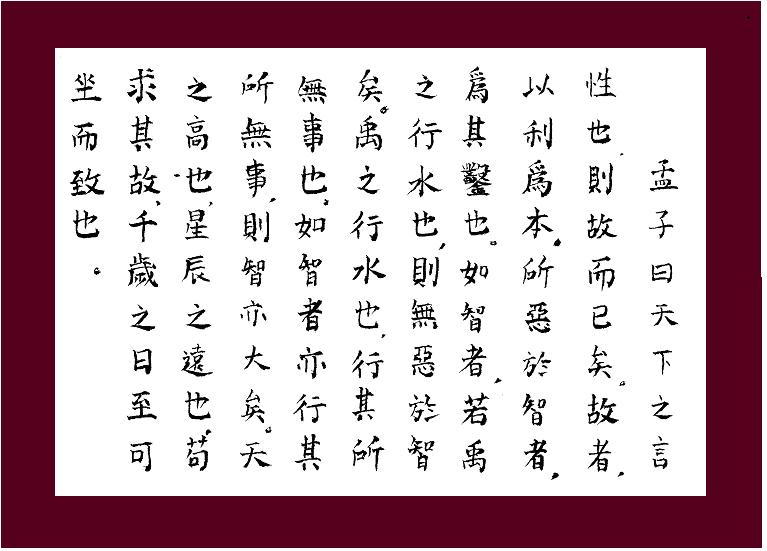 孟子曰天下之言
性也,則故而已矣。故者,
以利爲本。所惡於智者,
爲其鑿也。如智者,若禹
之行水也,則無惡於智
矣。禹之行水也,行其所
無事也。如智者亦行其
所無事,則智亦大矣。天
之高也,星辰之遠也。苟
求其故,千歲之日至可
坐而致也。